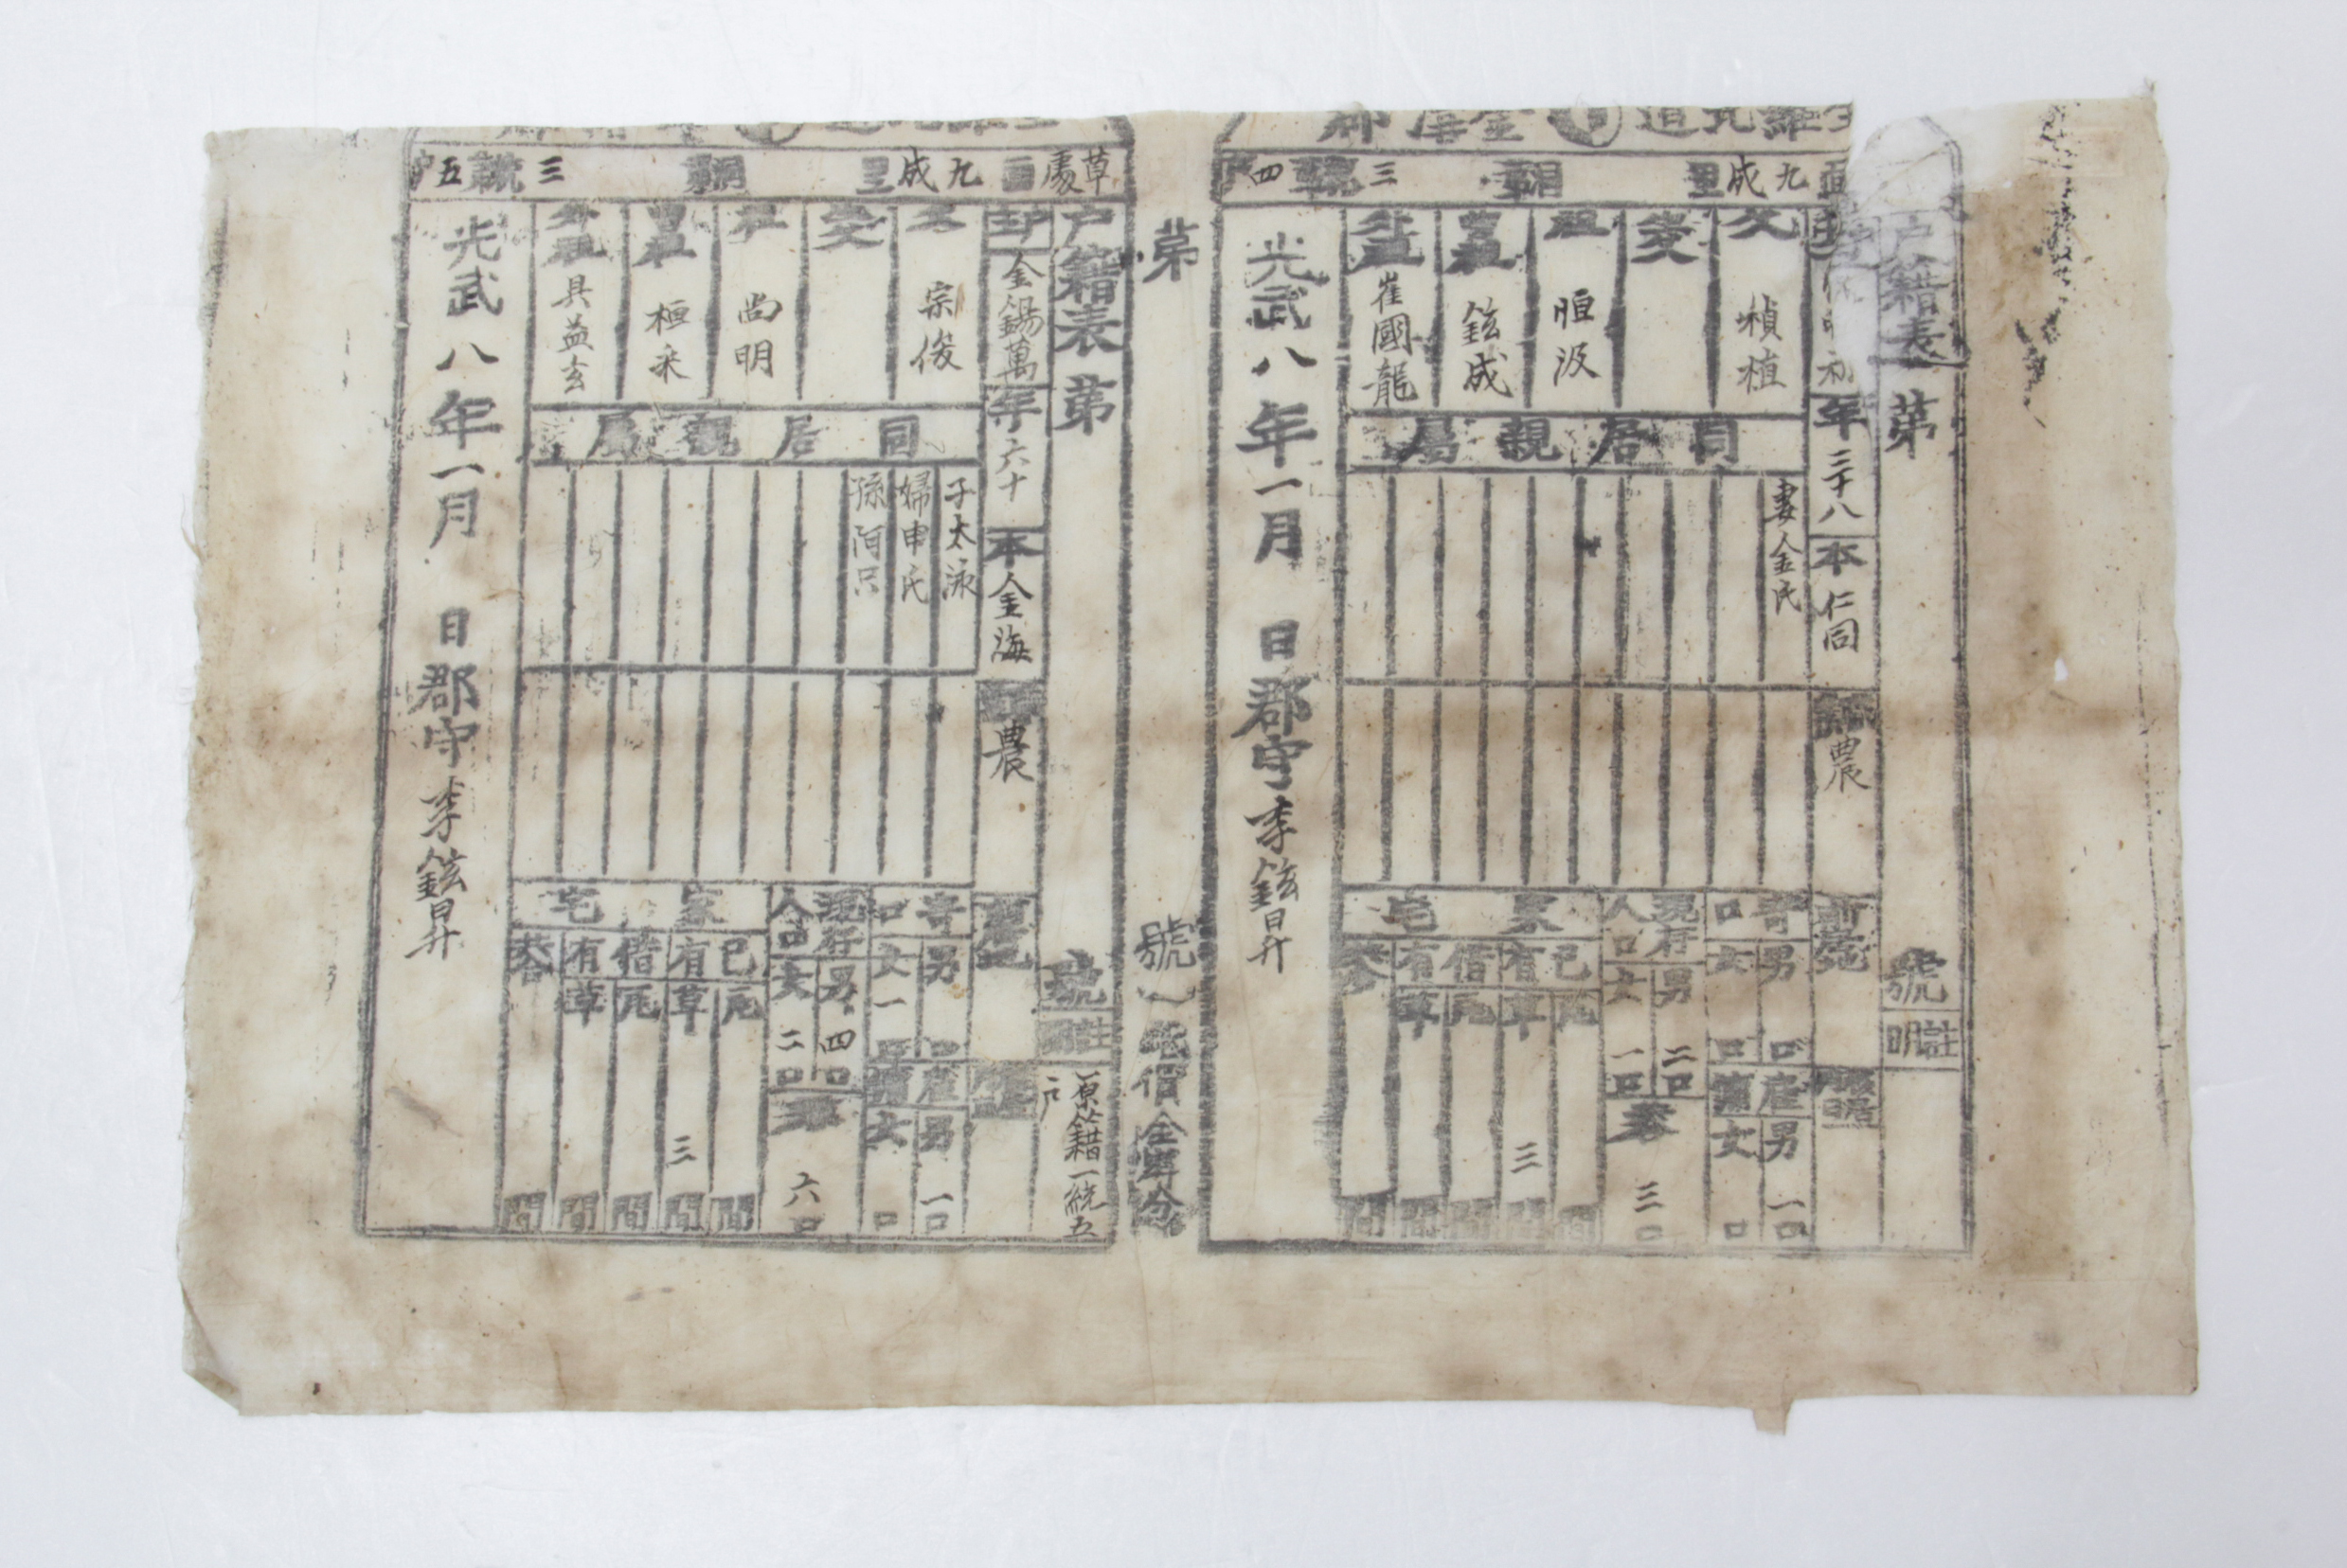 全羅北道 金堤郡
面 九成里 洞 三統四戶
戶籍表 第 號
年 三十八
本 仁同
農
前居
移居 月 日
註明
父 楨植
生父
祖 晅汲
曾祖 鉉成
外祖 崔國龍
同居親屬
妻 金氏
寄口 男 口 女 口
雇傭 男 一口 女 口
現存人口 男 二口 女 一口
共 三口
家宅
己有 瓦 間 草 三間
借有 瓦 間 草 間
共 間
光武八年一月 日 郡守 李鉉昇
第 號 紙價金 分
草處面 九成里 洞 三統五戶
戶籍表 第 號
金錫萬
年 六十
本 金海
農
註明
原籍一統五戶
父 宗俊
生父
祖 尚明
曾祖 桓采
外祖 具益玄
同居親屬
子 太泳
婦 申氏
孫 阿只
寄口 男 口 女 一口
雇傭 男 一口 女 口
現存人口 男 四口 女 二口
共 六口
家宅
己有 瓦 間 草 三間
借有 瓦 間 草 間
共 間
光武八年一月 日 郡守 李鉉昇